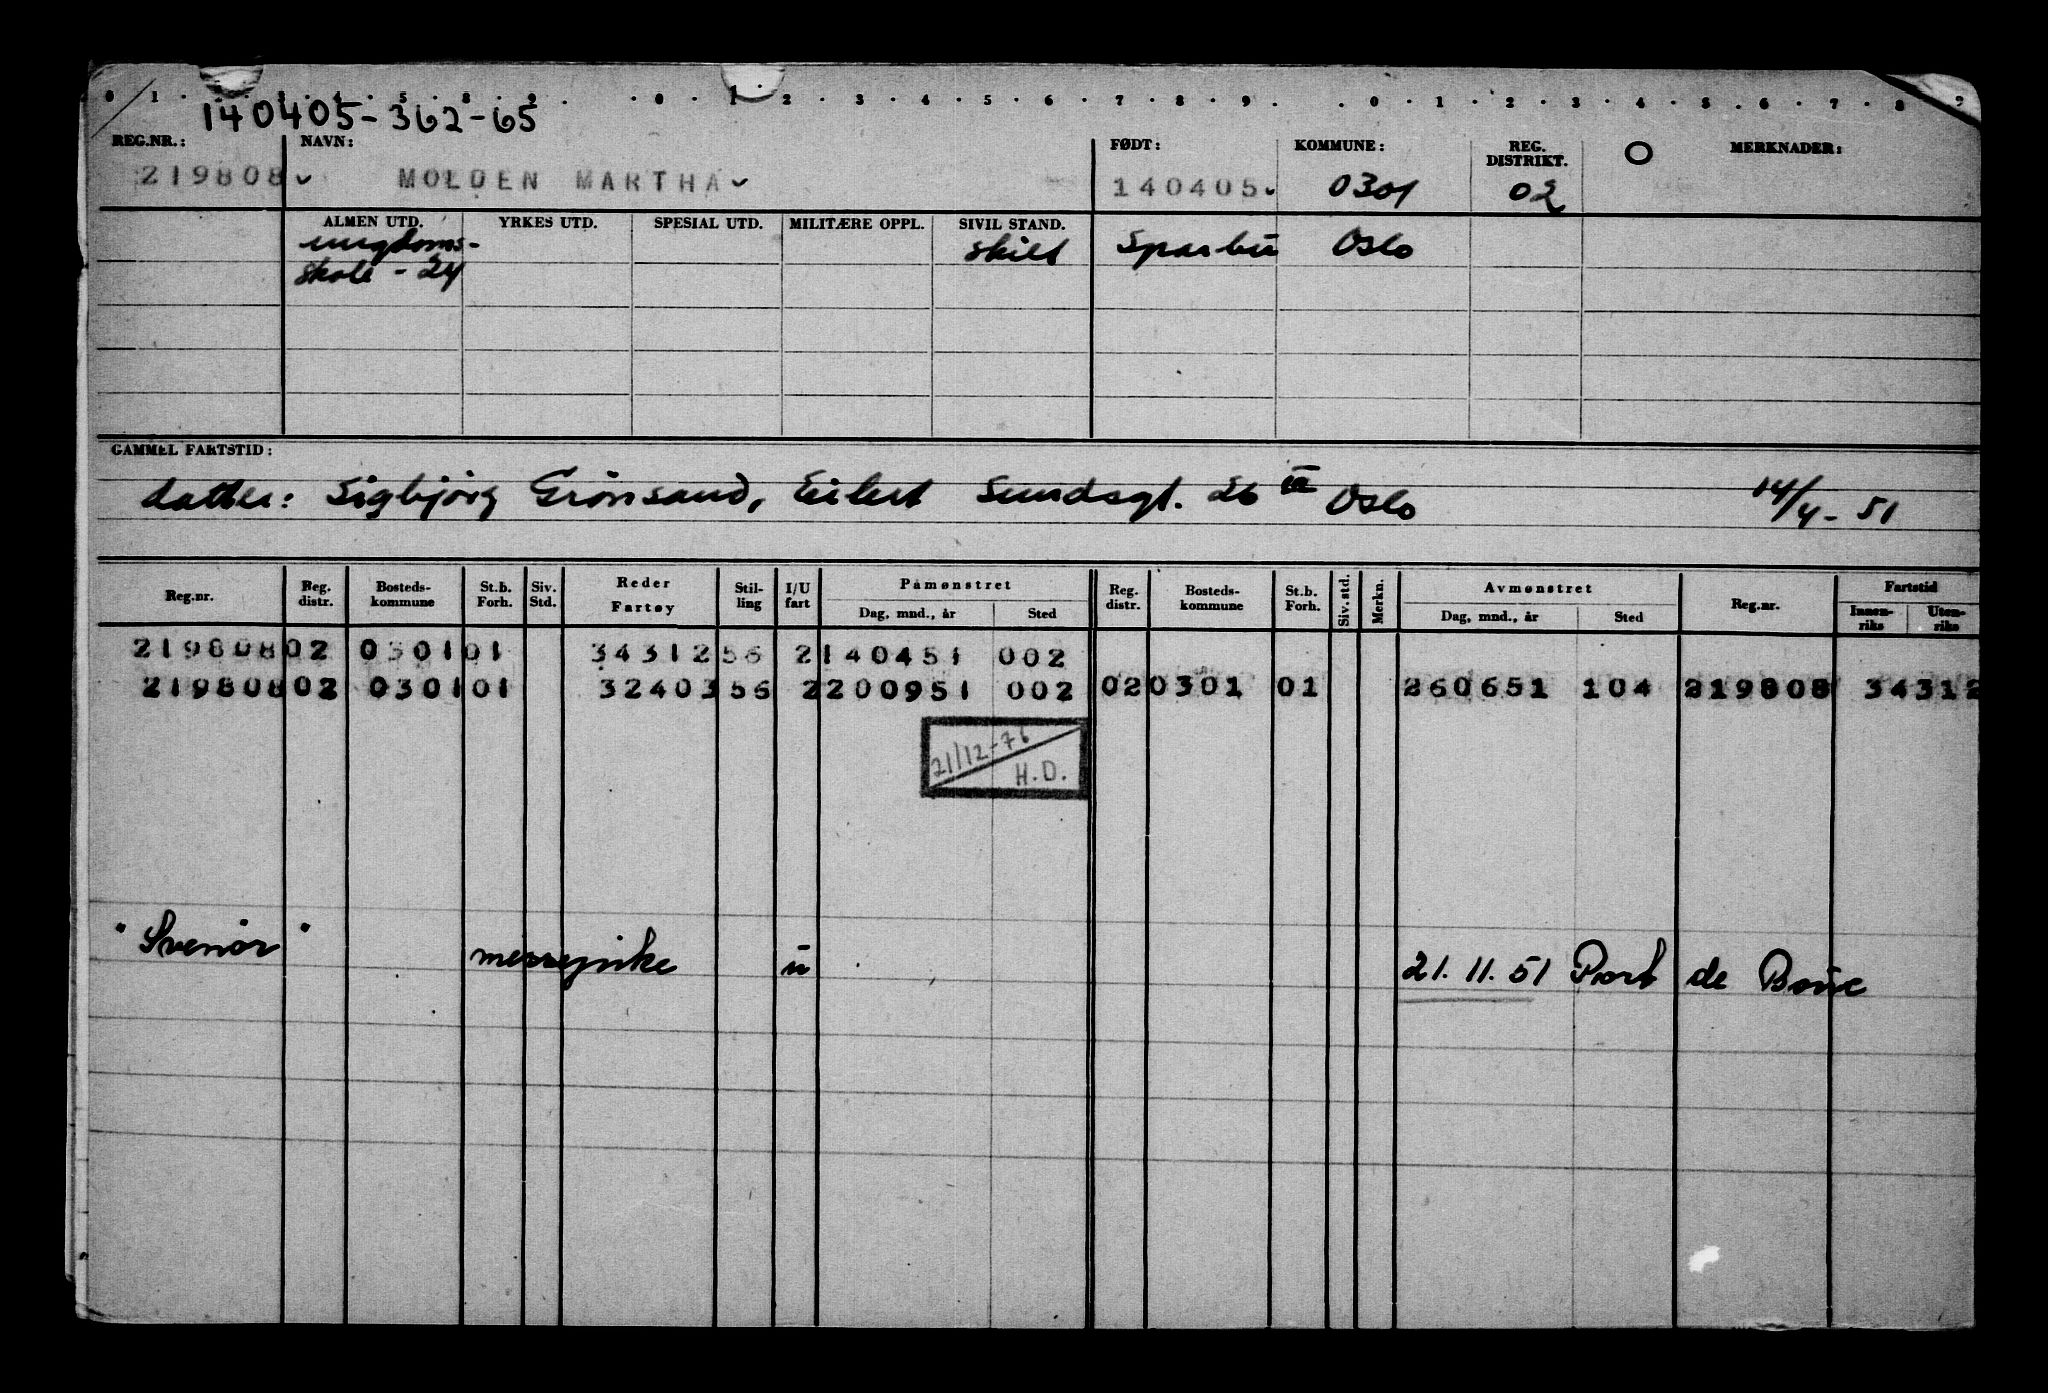 0 1 . . . 4 . 5 . 8 . 9 . . 0 . 1 . 2 . 3 . 4 . 5 . 6 . 7 . 8 . 9 . . 0 . 1 . 2 . 3 . 4 . 5 . 6 . 7 . 8 . 9
140405-362-65
REG.NR.: NAVN: FØDT: KOMMUNE: REG. DISTRIKT. O MERKNADER:
219808 MOLDEN MARTHA 140405 0301 02
ALMEN UTD. YRKES UTD. SPESIAL UTD. MILITÆRE OPPL. SIVIL STAND.
ungdoms- skilt Sparbu Oslo
skole - 24
GAMMEL FARTSTID:
datter: Sigbjörg Grönsand, Eilert Sundsgt. 26 III Oslo 14/4-51
Reg.nr. Reg. distr. Bosteds-kommune St.b. Forh. Siv. Std. Reder Fartøy Stil-ling I/U fart Påmønstret Dag, mnd., år Sted Reg. distr. Bosteds-kommune St.b. Forh. Siv. std. Merkn. Avmønstret Dag, mnd., år Sted Reg.nr. Fartstid Innen-riks Uten-riks
219808 02 0301 01 34312 56 2 140451 002
219808 02 0301 01 32403 56 2 200951 002 02 0301 01 260651 104 219808 34312
21/12-76
H.D.
"Svenör" messepike u 21.11.51 Port de Bouc